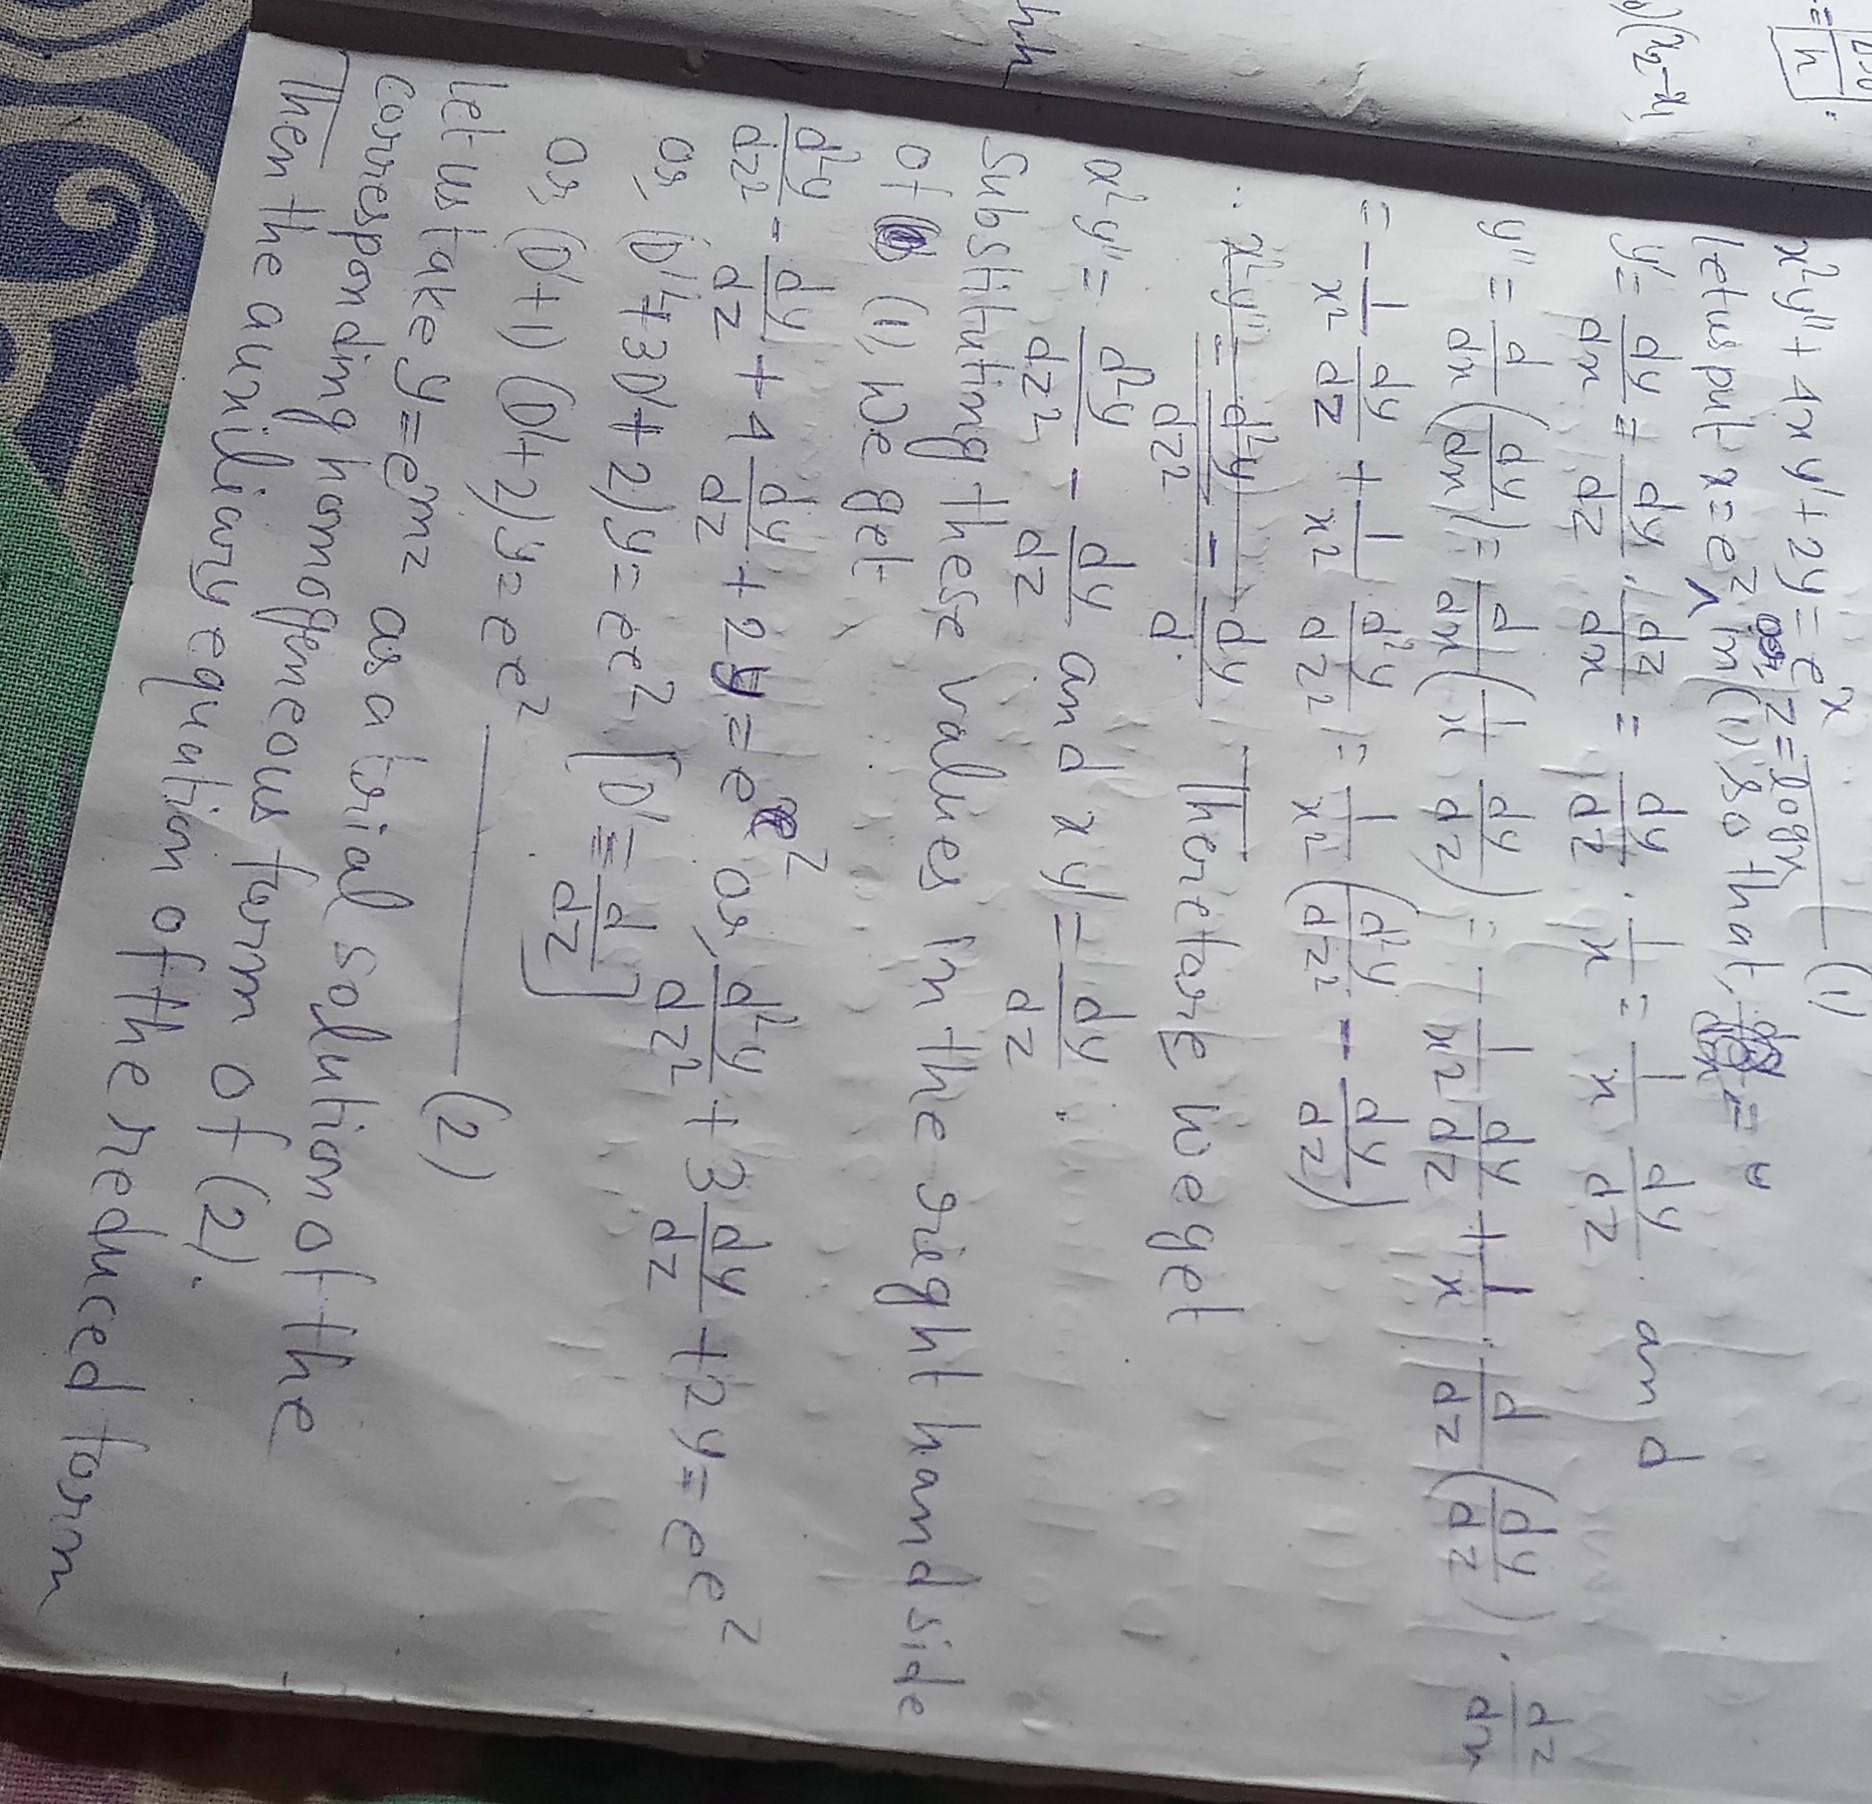 x²y''+4xy'+2y=e^x (1)
let us put x=e^z or, z=logx in (1) so that,
y'=dy/dx=dy/dz.dz/dx=dy/dz.1/x=1/x dy/dz. and
y''=d/dx(dy/dx)=d/dx(1/x dy/dz)=-1/x² dy/dz+1/x.d/dz(dy/dz).dz/dx
=-1/x² dy/dz+1/x².d²y/dz²=1/x²(d²y/dz²-dy/dz)
Therefore we get
x²y''=d²y/dz²-dy/dz and xy'=dy/dz.
Substituting these values in the right hand side
of (1), we get
d²y/dz²-dy/dz+4dy/dz+2y=e^e^z or, d²y/dz²+3dy/dz+2y=e^e^z
or, (D'²+3D'+2)y=e^e^z [D'≡d/dz]
or, (D'+1)(D'+2)y=e^e^z (2)
let us take y=e^mz as a trial solution of the
corresponding homogeneous form of (2).
Then the auxiliary equation of the reduced form